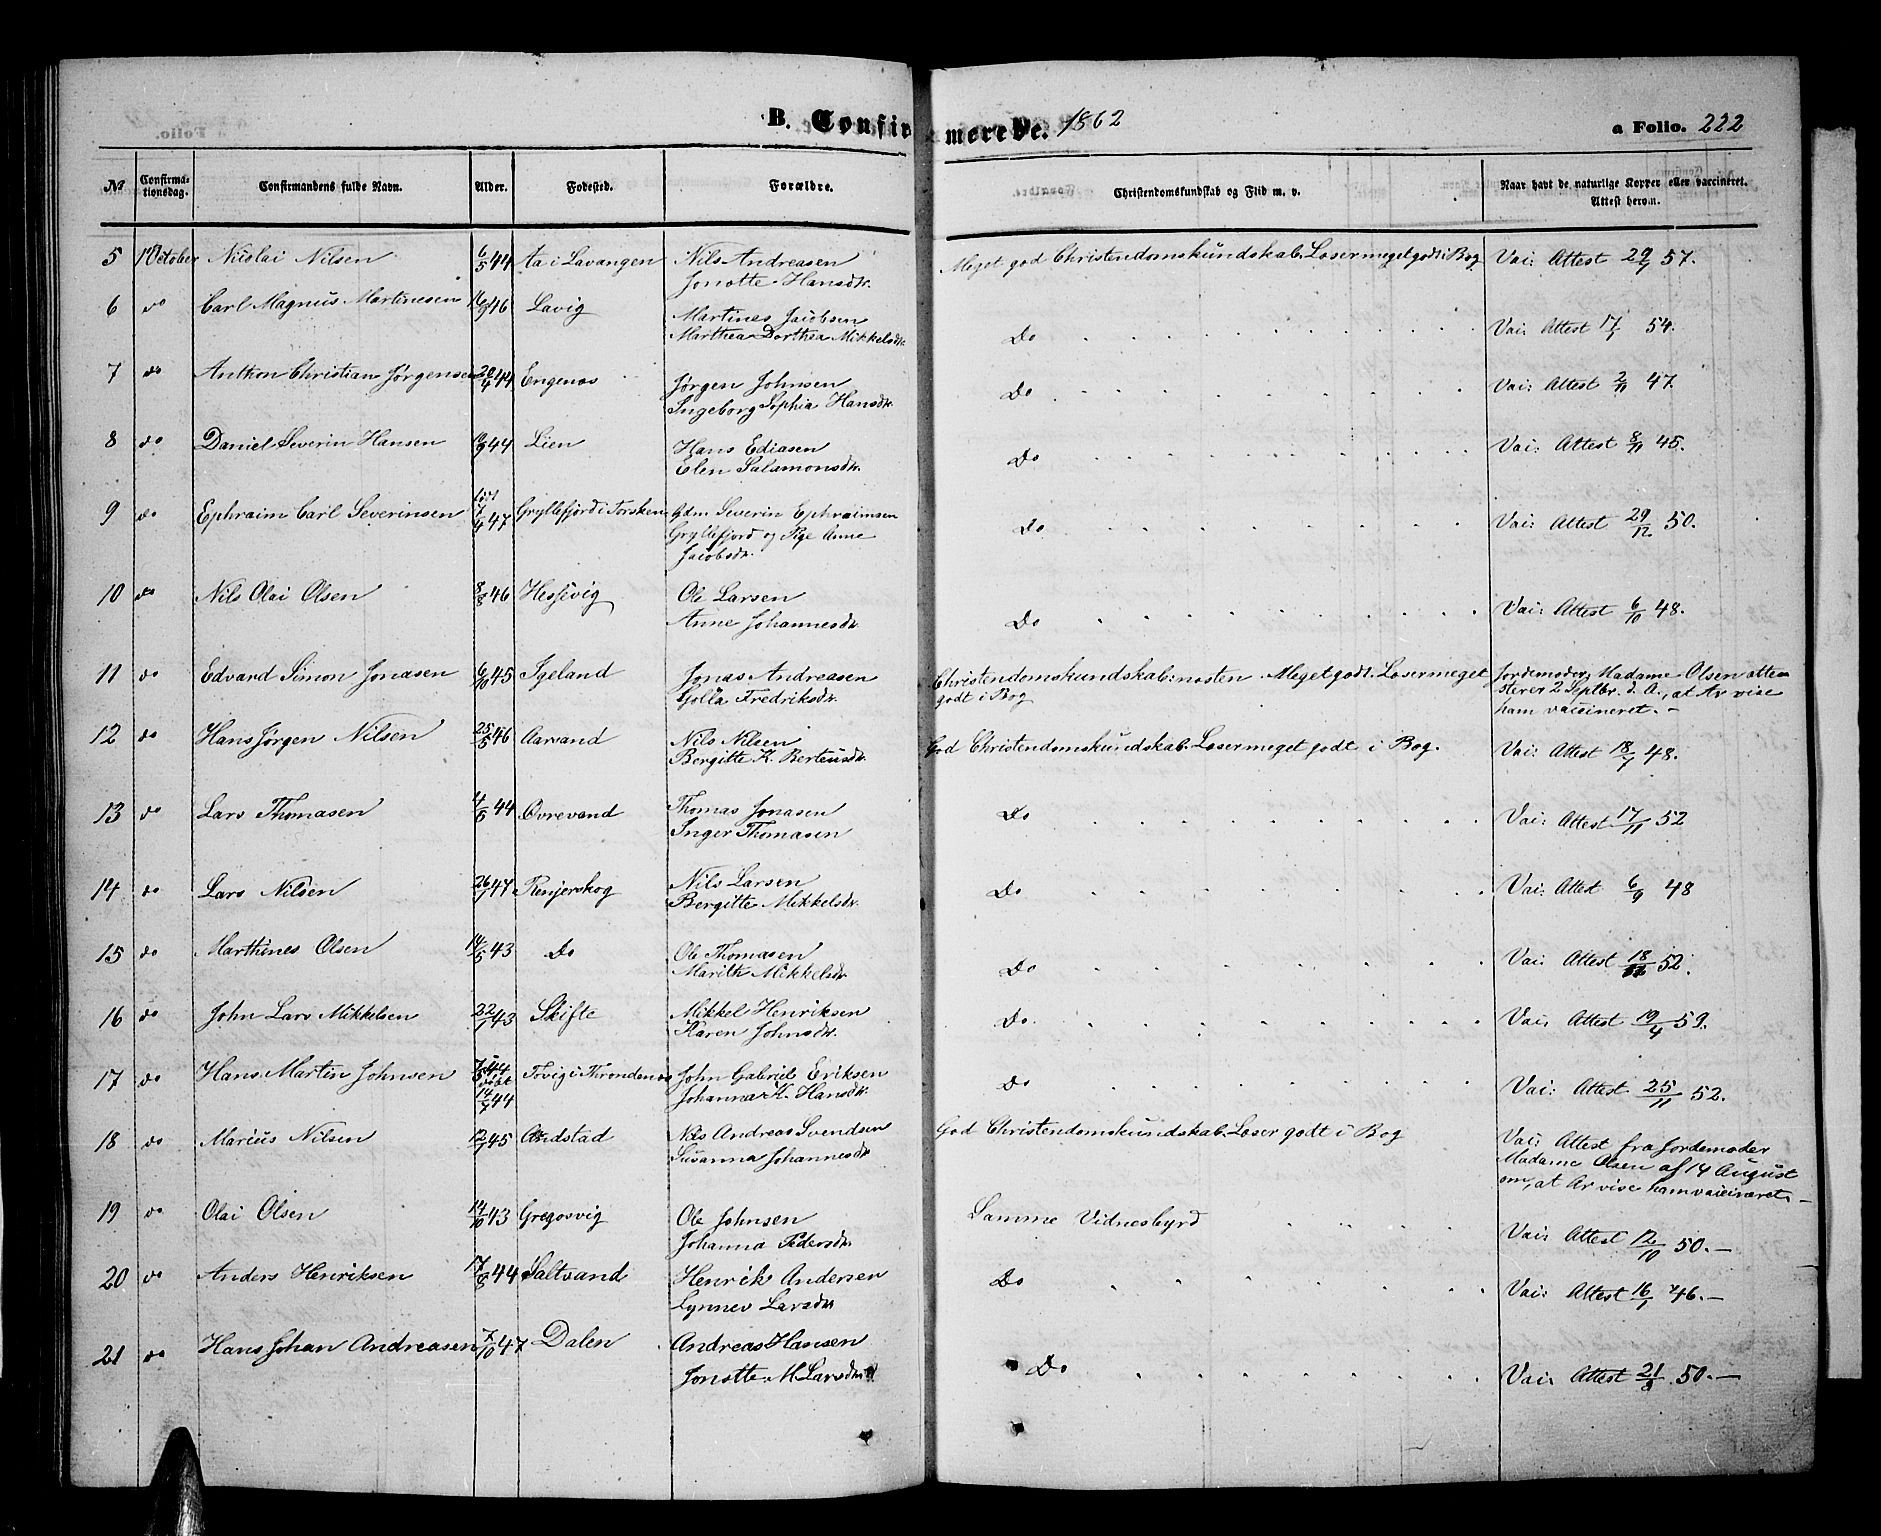 B. Confirmerede. 1862
a Folio. 222
№ Confirmationsdag. Confirmandens fulde Navn. Alder. Fødested. Forældre. Christendomskundskab og Flid m. v. Naar havt de naturlige Kopper eller vaccineret. Attest herom.
5 October Nicolai Nilsen 6/5 44 Aa i Lavangen Nils Andreasen Meget god Christendomskundskab. Læser meget godt i Bog Vac: Attest 57.
Jonette Hansdtr.
6 do Carl Magnus Martinesen 46 Lavig Martines Jacobsen Do Vac: Attest 17/7 54.
Marthea Dorthea Mikkelsdtr.
7 do Anthon Christian Jørgensen 20/4 44 Engenæs Jørgen Johnsen Do Vac: Attest 2/11 47.
Ingeborg Sophia Hansdtr.
8 do Daniel Severin Hansen 44 Lien Hans Ediasen Do Vac: Attest 8/11 45.
Elen Salamonsdtr.
9 do Ephraim Carl Severinsen 47 Gryllefjord i Torsken Gdm Severin Ephraimsen Do Vac: Attest 29/12 50.
Gryllefjord og Pige Anne
Jacobsdtr.
10 do Nils Olai Olsen 8/8 46 Hessevig Ole Larsen Do Vac: Attest 6/10 48.
Anne Johannesdtr.
11 do Edvard Simon Jonasen 6/10 45 Igeland Jonas Andreasen Christendomskundskab: næsten Meget godt. Læser meget Jordemoder, Madame Olsen atte-
Golla Fredriksdtr. godt i Bog sterer 2 Septbr. d. A., at Ar vise
ham vaccineret. -
12 do Hans Jørgen Nilsen 25/5 46 Aarvand Nils Nilsen God Christendomskundskab. Læser meget godt i Bog. Vac: Attest 18/7 48.
Bergitte K. Berteusdtr.
13 do Lars Thomasen 4/5 44 Øvrevand Thomas Jonasen Do Vac: Attest 17/11 52
Inger Thomasen
14 do Lars Nilsen 47 Renjerskog Nils Larsen Do Vac: Attest 6/9 48
Bergitte Mikkelsdtr.
15 do Marthines Olsen 14/5 43 Do Ole Thomasen Do Vac: Attest 52.
Marith Mikkelsdtr
16 do John Lars Mikkelsen 22/1 43 Skifte Mikkel Henriksen Do. Vac: Attest 19/4 59.
Karen Johnsdtr.
17 do Hans Martin Johnsen 44 døbt Tovig i Throndenæs John Gabriel Eriksen Do Vac: Attest 25/11 52.
14/7 44 Johanna K. Hansdtr.
18 do Marius Nilsen 45 Andstad Nils Andreas Svendsen God Christendomskundskab. Læser godt i Bog Vac: Attest fra Jordemoder
Susanna Johannesdtr Madame Olsen af 14 August
om, at Ar vise ham vaccineret. -
19 do Olai Olsen 14/10 43 Gregosvig Ole Johnsen Samme Vidnesbyrd Vac: Attest 12/10 50. -
Johanna Pedersdtr.
20 do Anders Henriksen 17/8 44 Saltvand Henrik Andersen Do Vac: Attest 16/1 46. -
Lynnev Larsdtr
21 do Hans Johan Andreasen 7/10 47 Dalen Andreas Hansen Do Vac: Attest 21/8 50. -
Jonette M Larsdtr